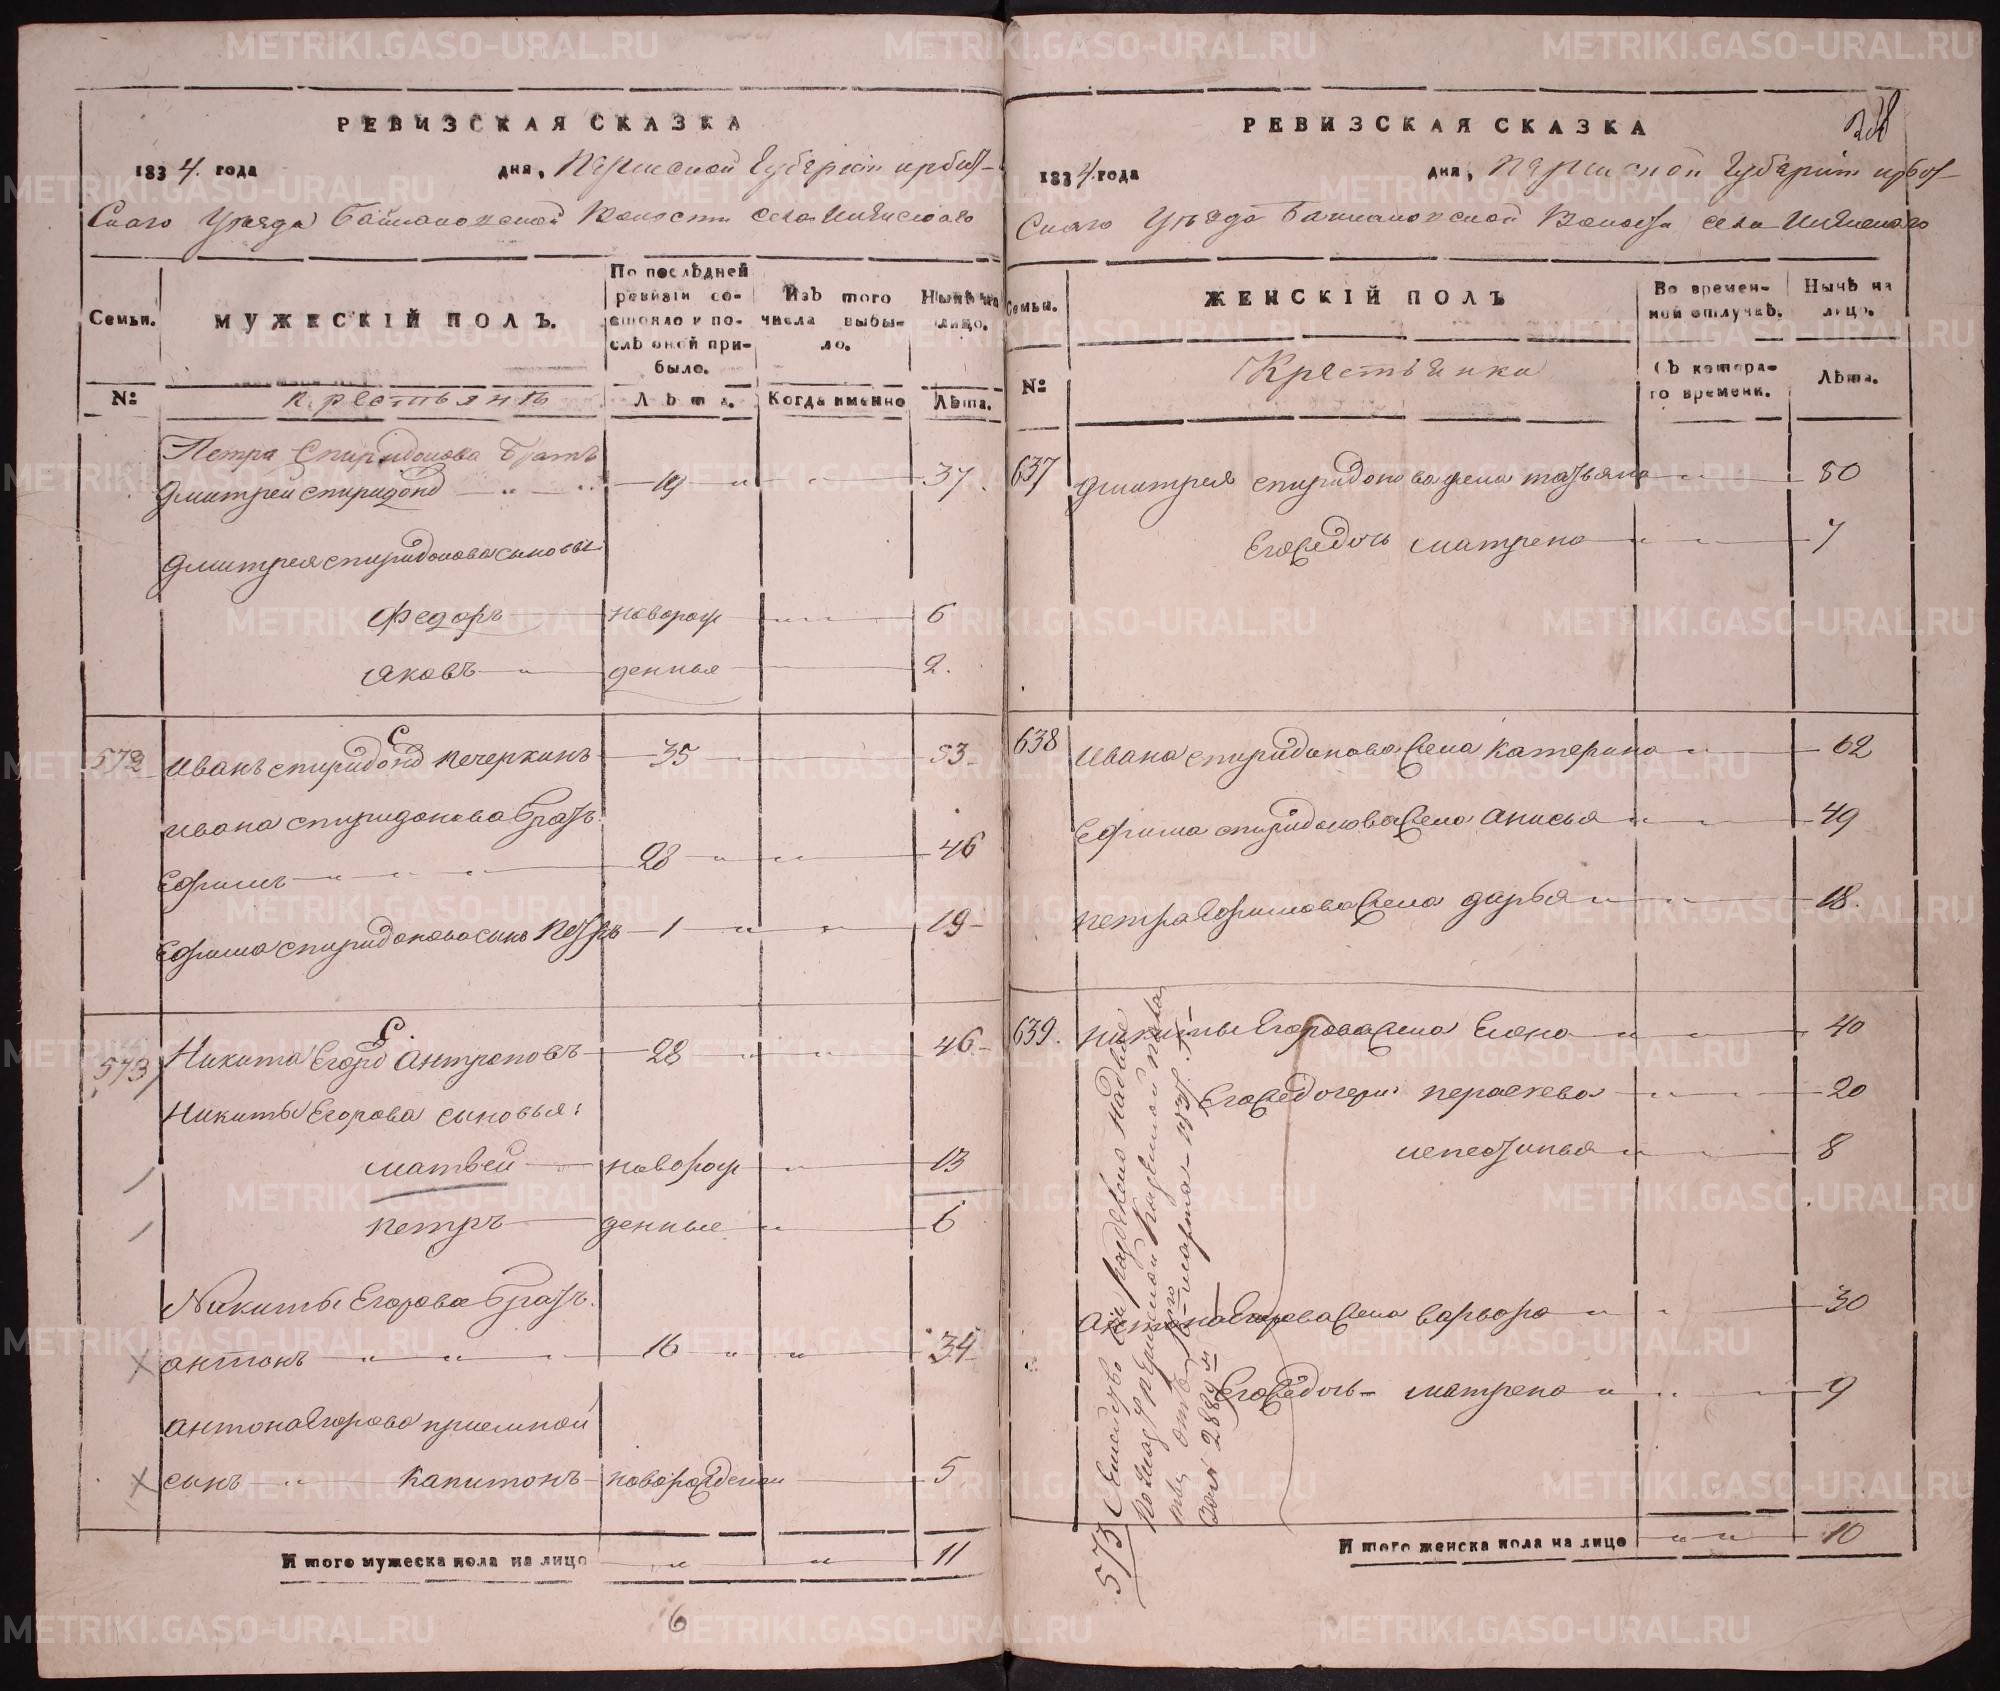 РЕВИЗСКАЯ СКАЗКА
1834. года дня, Пермской Губернiи ирбит-
Скаго Уѣзда Баймаковской Волости села
Семьи.
МУЖЕСКIЙ ПОЛЪ.
По послѣдней ревизiи со-
стояло и по-
слѣ оной при-
было.
Изъ того
числа выбы-
ло.
Нынѣ на
лицо.
№
крестьянъ
Лѣта.
Когда именно
Лѣта.
Петра Спиридонова братъ
Дмитрей спиридонов 19 37.
Дмитрея спиридонова сыновья
Федоръ новорож 6
яковъ денныя 2.
572 С
Иванъ спиридонов печеркинъ 35 53
Ивана спиридонова братъ
Ефимъ 28 46
Ефима спиридонова сынъ петръ 1 19
573 С.
Никита Егоров Антроповъ 28 46
Никиты Егорова сыновья:
матвей новорож 13
петръ денные 6
Никиты Егорова братъ
антонъ 16 34
антона Егорова приемной
сынъ капитонъ новорожденой 5
И того мужеска пола на лицо 11
6
28
РЕВИЗСКАЯ СКАЗКА
1834. года дня, Пермской Губернiи ирбит-
Скаго Уѣзда Баймаковской Волости села
Семьи.
ЖЕНСКIЙ ПОЛЪ
Во времен-
ной отлучкѣ.
Нынѣ на
лицо.
№
Крестьянки
Съ котора-
го времени.
Лѣта.
637 Дмитрея спиридонова жена татьяна 50
Его Дочь матрена 7
638 Ивана спиридонова жена Катерина 62
Ефима спиридонова жена анисья 49
петра Ефимова жена дарья 18.
639. никиты Егорова жена Елена 40
Его дочери параскева 20
8
антона Егорова жена варвара 30
Его дочь матрена 9
573 Семейство сiе раздѣлено
И того женска пола на лицо 10
METRIKI.GASO-URAL.RU